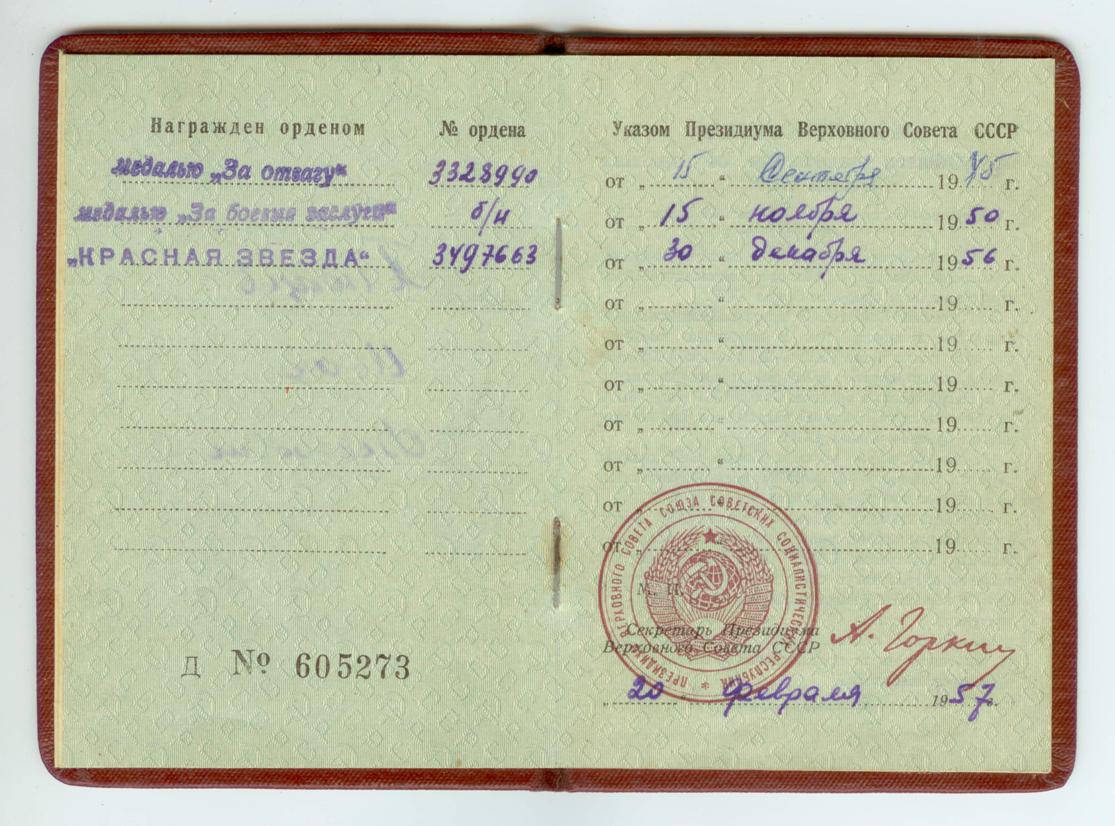 Награжден орденом № ордена
медалью „За отвагу“ 3328990
медалью „За боевые заслуги“ б/н
„КРАСНАЯ ЗВЕЗДА“ 3497663
Д № 605273
Указом Президиума Верховного Совета СССР
от „ 15 “ Сентября 1945 г.
от „ 15 “ ноября 1950 г.
от „ 30 “ декабря 1956 г.
от „ “ 19 г.
от „ “ 19 г.
от „ “ 19 г.
от „ “ 19 г.
от „ “ 19 г.
от „ “ 19 г.
от „ “ 19 г.
ПРЕЗИДИУМ ВЕРХОВНОГО СОВЕТА СОЮЗА СОВЕТСКИХ СОЦИАЛИСТИЧЕСКИХ РЕСПУБЛИК
М. П.
Секретарь Президиума
Верховного Совета СССР
А. Горкин
„ 20 “ февраля 1957 г.